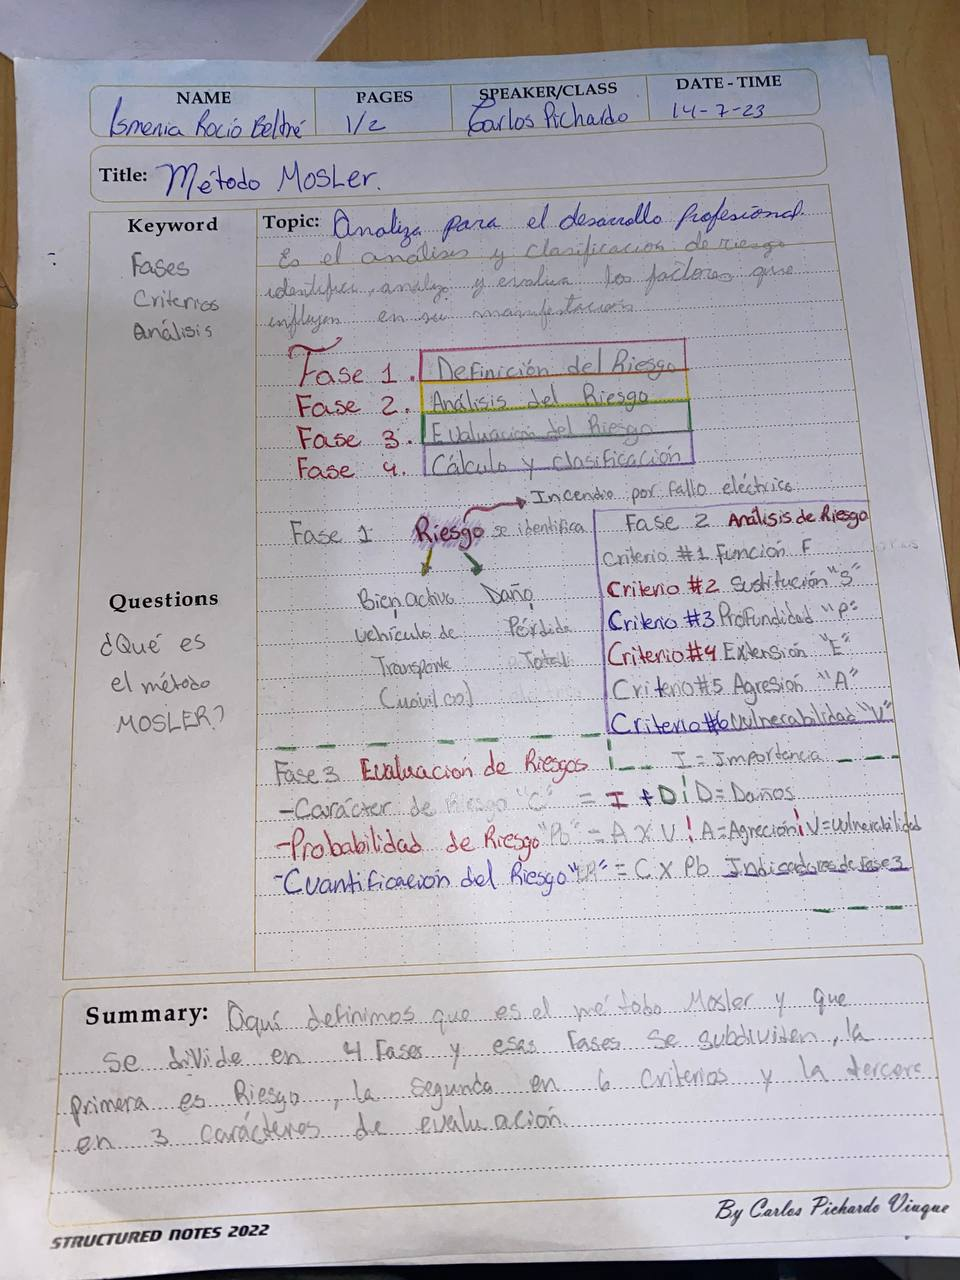 NAME
PAGES
SPEAKER/CLASS
DATE - TIME
Ismenia Rocío Beltré
1/2
Carlos Pichardo
14-7-23
Title: Método MOSLER.
Keyword
Fases
Criterios
Análisis
Topic: Analiza para el desarrollo Profesional.
Es el análisis y clasificación de riesgo
identifica, analiza y evalua los factores que
influyen en su manifestación
Fase 1. Definición del Riesgo
Fase 2. Análisis del Riesgo
Fase 3. Evaluación del Riesgo
Fase 4. Cálculo y clasificación
Incendio por fallo eléctrico
Fase 1 Riesgo se identifica
Bien activo Daño
vehículo de Pérdida
Transporte Total
Fase 2 Análisis de Riesgo
Criterio #1 Función F
Criterio #2 Sustitución "S"
Criterio #3 Profundidad "P"
Criterio #4 Extensión "E"
Criterio #5 Agresión "A"
Criterio #6 Vulnerabilidad "V"
Questions
¿Qué es
el método
MOSLER?
Fase 3 Evaluación de Riesgos I = Importancia
-Carácter de Riesgo "C" = I + D D = Daños
-Probabilidad de Riesgo "Pb" = A X V A = Agreción V = Vulnerabilidad
-Cuantificación del Riesgo = C X Pb Indicadores de Fase 3
Summary: Aquí definimos que es el método Mosler y que
se divide en 4 Fases y esas Fases se subdividen, la
primera es Riesgo, la segunda en 6 criterios y la tercera
en 3 carácteres de evaluación.
STRUCTURED NOTES 2022
By Carlos Pichardo Viuque